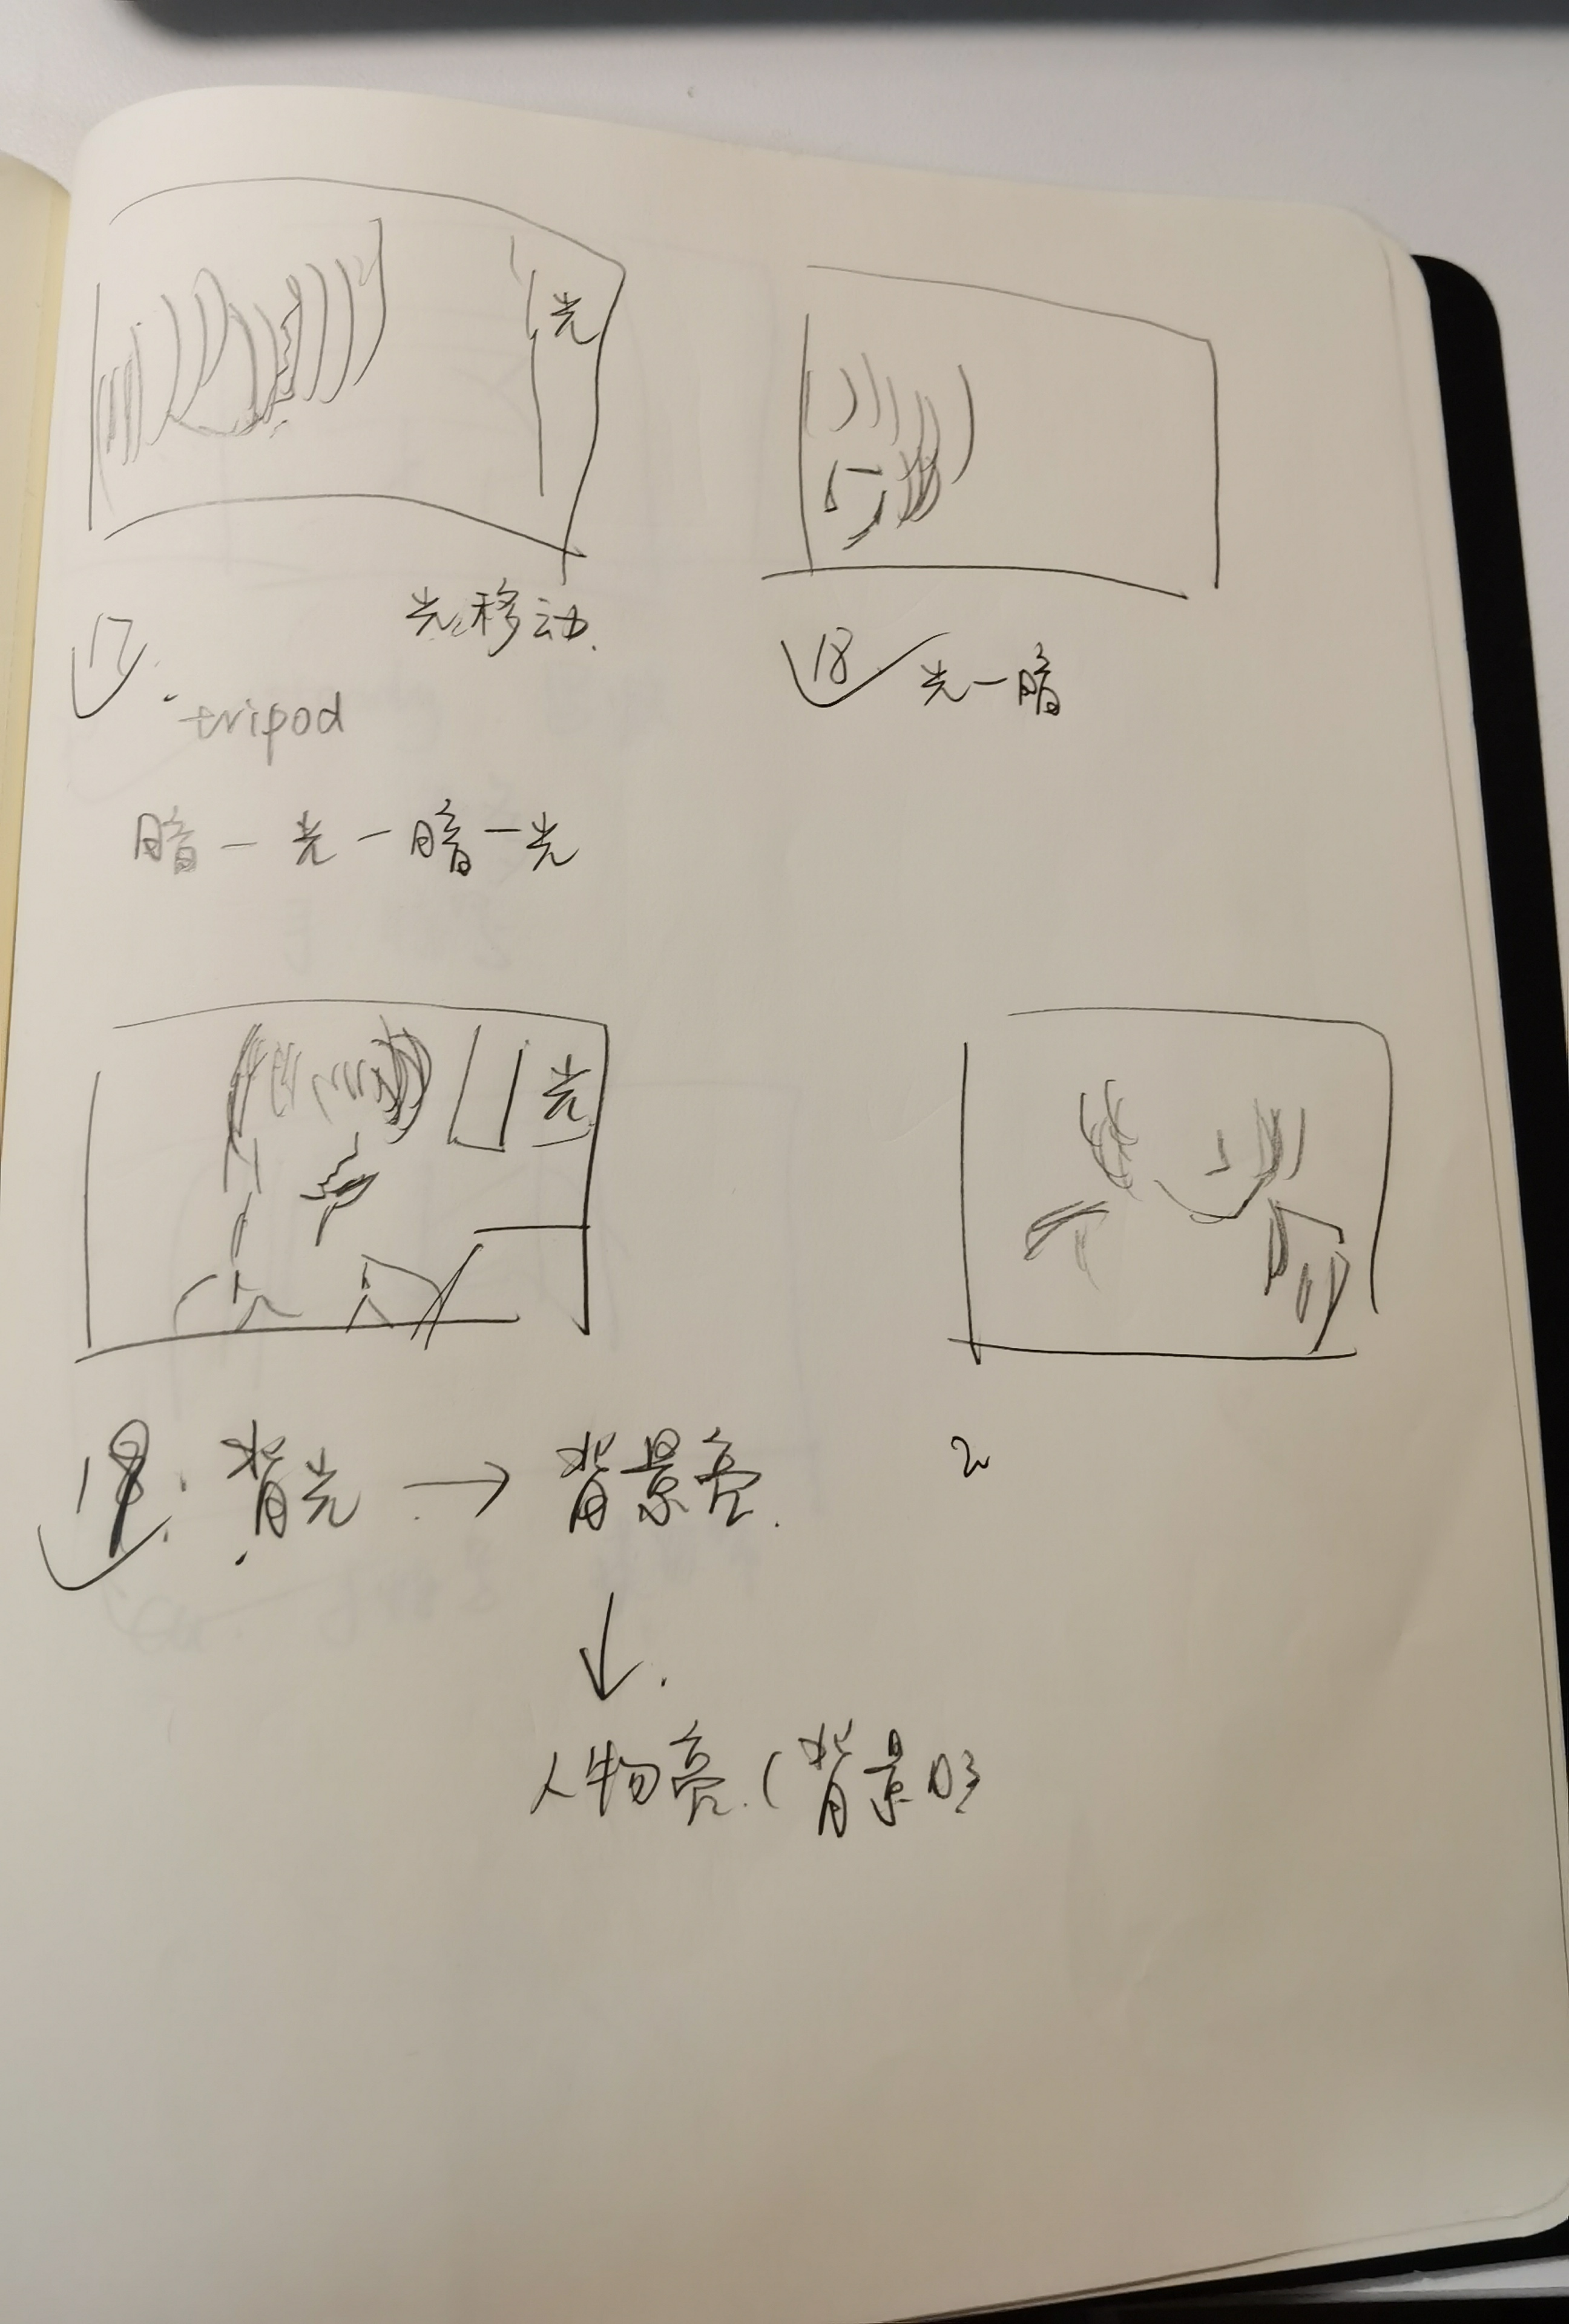 光
光移动.
17.
tripod
暗一光一暗一光
18 光一暗
光
19: 背光 → 背景亮.
↓.
人物亮.(背景
2